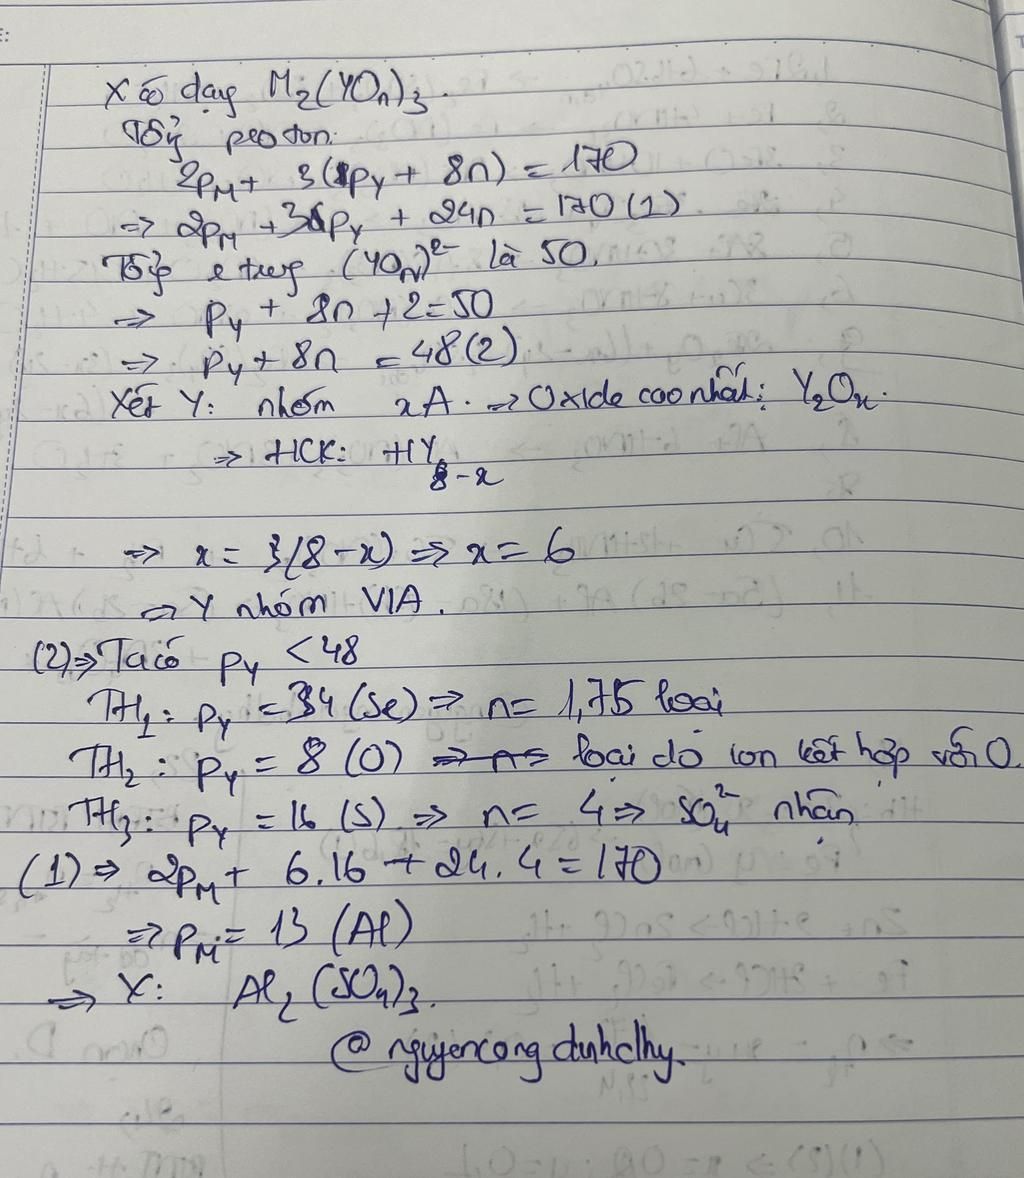 X có dạng M₂(YOₙ)₃.
Tổng proton:
2pM + 3(pY + 8n) = 170
⇒ 2pM + 3pY + 24n = 170 (1)
Tổng e trong (YOₙ)²⁻ là 50.
⇒ pY + 8n + 2 = 50
⇒ pY + 8n = 48 (2)
Xét Y: nhóm xA. ⇒ Oxide cao nhất: Y₂Oₓ.
⇒ HCK: HY₈₋ₓ
⇒ x = 3(8 - x) ⇒ x = 6
⇒ Y nhóm VIA.
(2) ⇒ Ta có pY < 48
TH₁: pY = 34 (Se) ⇒ n = 1,75 loại
TH₂: pY = 8 (O) loại do ion kết hợp với O.
TH₃: pY = 16 (S) ⇒ n = 4 ⇒ SO₄²⁻ nhận
(1) ⇒ 2pM + 6.16 + 24.4 = 170
⇒ pM = 13 (Al)
⇒ X: Al₂(SO₄)₃.